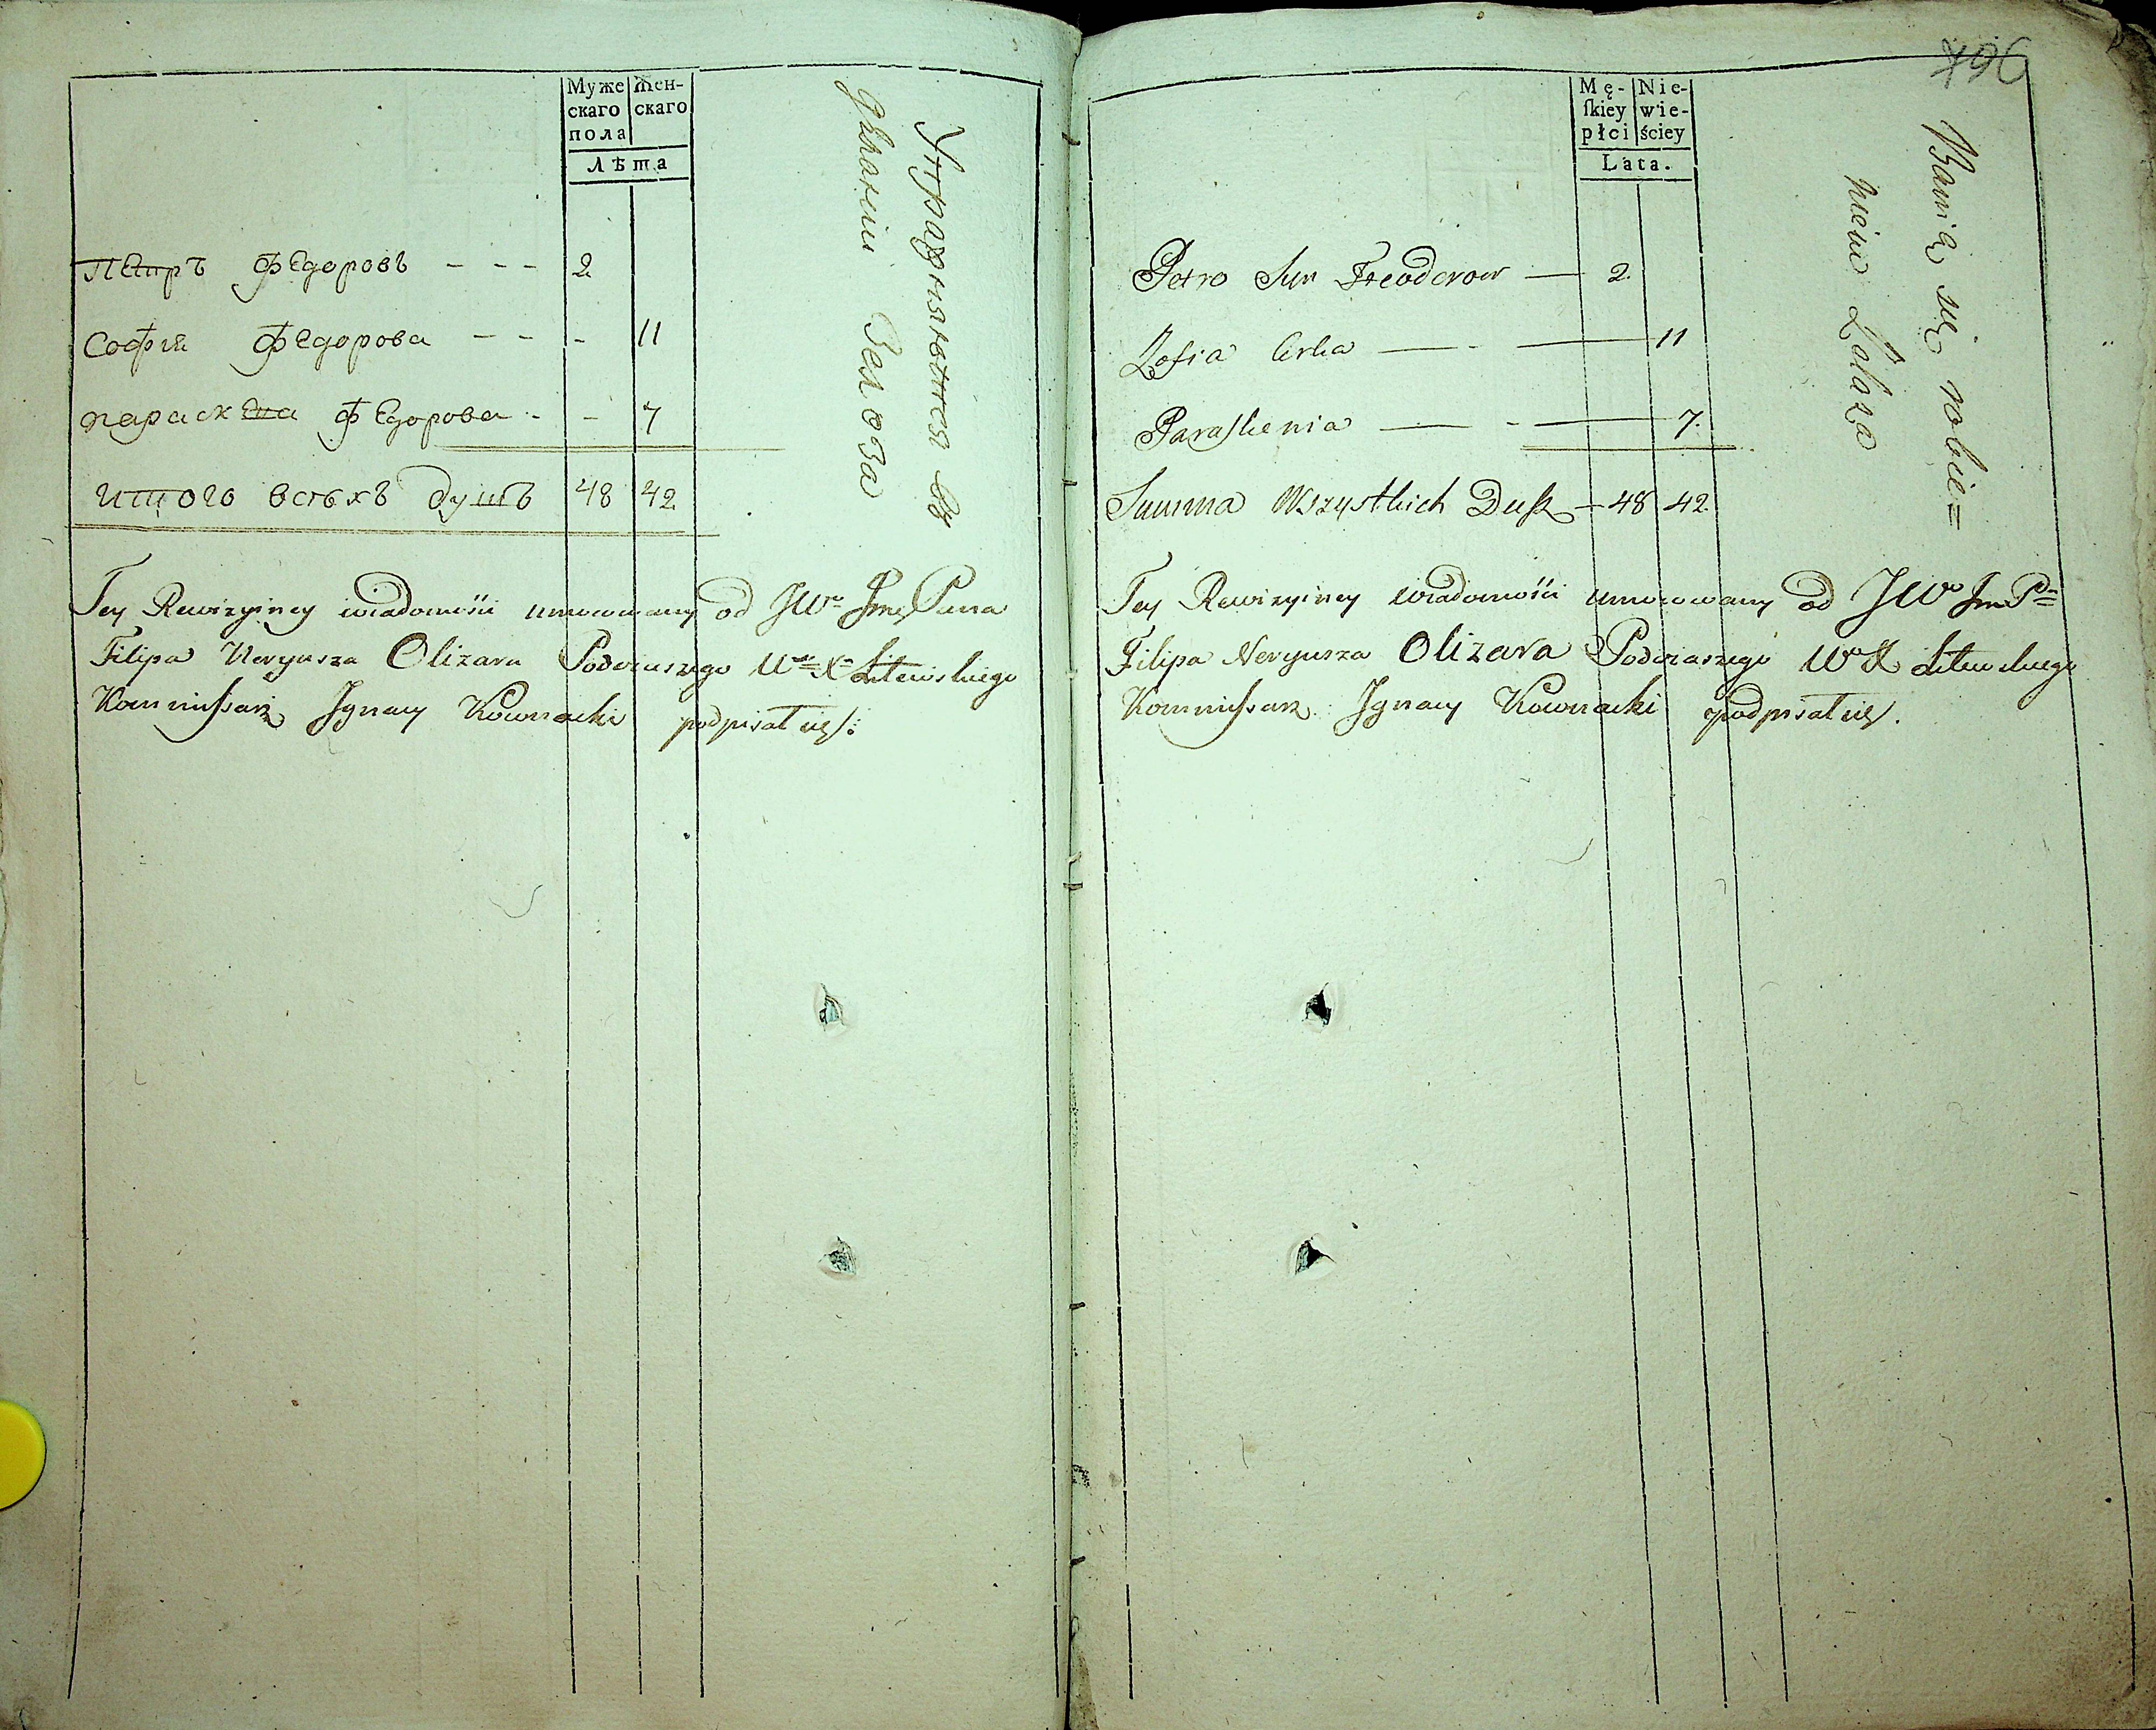 Муже
скаго
пола
Жен-
скаго
Лѣта
Петръ Федоровъ - - - 2
Софія Федорова - - - 11
Параскева Федорова - - 7
Итого всѣхъ душъ 48 42
Упражняются въ
дѣланіи Желѣза
Tey Rewizyiney wiadomości umocowany od JWo Jme Pana
Filipa Neryusza Olizara Podczaszego W X Litewskiego
Kommissarz Ignacy Kownacki podpisał się
796
Mę-
ſkiey
płci
Nie-
wie-
ściey
Lata.
Petro Syn Fteodorow — 2.
Zofia Corka — - — 11
Paraskewia — - — 7.
Summa Wszystkich Dusz — 48 42.
Bawią się robie=
niem Żelaza
Tey Rewizyiney wiadomości umocowany od JWo Jm P=
Filipa Neryusza Olizara Podczaszego W X Litewskiego
Kommissarz Ignacy Kownacki podpisał się.